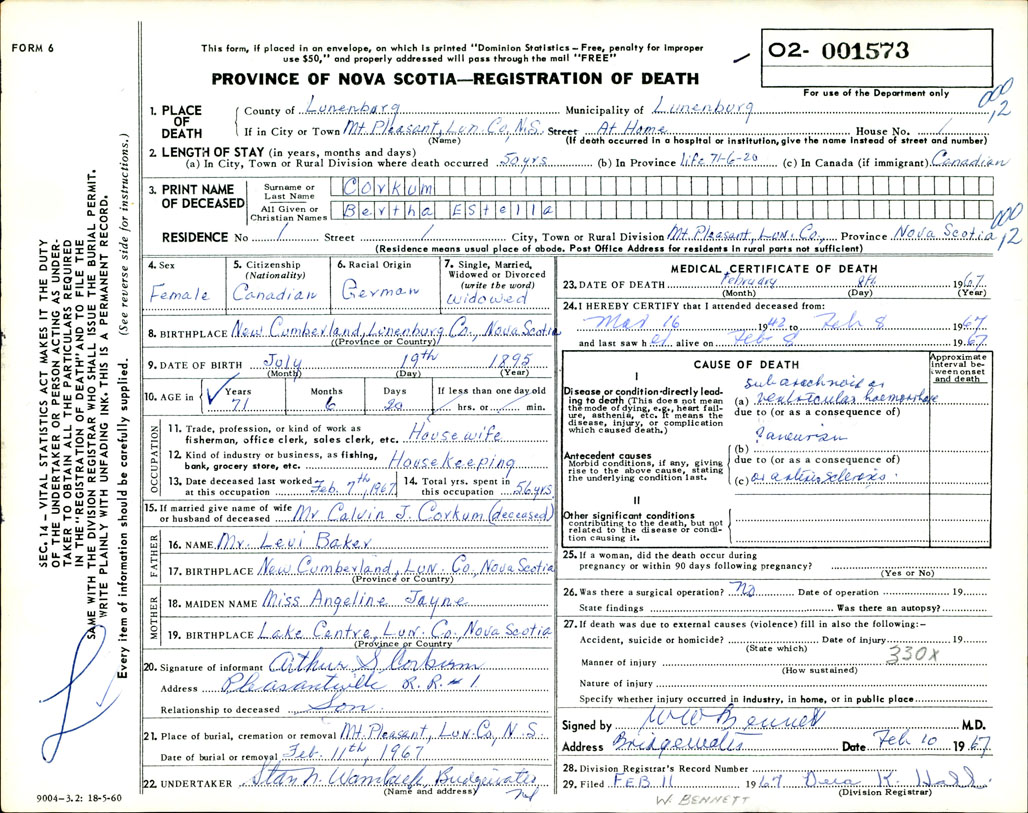 FORM 6
This form, if placed in an envelope, on which is printed "Dominion Statistics – Free, penalty for improper
use $50," and properly addressed will pass through the mail "FREE"
O2- 001573
PROVINCE OF NOVA SCOTIA—REGISTRATION OF DEATH
For use of the Department only
1. PLACE OF DEATH
County of Lunenburg Municipality of Lunenburg
If in City or Town Mt. Pleasant, Lun. Co, N.S. Street At Home House No. /
(Name) (If death occurred in a hospital or institution, give the name instead of street and number)
2. LENGTH OF STAY (in years, months and days)
(a) In City, Town or Rural Division where death occurred 50 yrs (b) In Province Life 71-6-20 (c) In Canada (if immigrant) Canadian
3. PRINT NAME OF DECEASED
Surname or Last Name Corkum
All Given or Christian Names Bertha EStella
RESIDENCE No / Street / City, Town or Rural Division Mt. Pleasant, Lun. Co., Province Nova Scotia
(Residence means usual place of abode. Post Office Address for residents in rural parts is not sufficient)
4. Sex Female
5. Citizenship (Nationality) Canadian
6. Racial Origin German
7. Single, Married, Widowed or Divorced (write the word) widowed
8. BIRTHPLACE New Cumberland, Lunenburg Co., Nova Scotia
(Province or Country)
9. DATE OF BIRTH July 19th 1895
(Month) (Day) (Year)
10. AGE in Years 71 Months 6 Days 20 If less than one day old hrs. or min.
OCCUPATION
11. Trade, profession, or kind of work as
fisherman, office clerk, sales clerk, etc. Housewife
12. Kind of industry or business, as fishing,
bank, grocery store, etc. Housekeeping
13. Date deceased last worked at this occupation Feb. 7th, 1967 14. Total yrs. spent in this occupation 56 yrs
15. If married give name of wife or husband of deceased Mr Calvin J. Corkum (deceased)
FATHER
16. NAME Mr. Levi Baker
17. BIRTHPLACE New Cumberland, Lun. Co, Nova Scotia
(Province or Country)
MOTHER
18. MAIDEN NAME Miss Angeline Jayne
19. BIRTHPLACE Lake Centre, Lun. Co, Nova Scotia
(Province or Country)
20. Signature of informant Arthur S Corkum
Address Pleasantville R.R. #1
Relationship to deceased Son
21. Place of burial, cremation or removal Mt. Pleasant, Lun. Co, N.S.
Date of burial or removal Feb. 11th, 1967
22. UNDERTAKER Stan N. Wamback, Bridgewater
(Name and address)
9004-3.2: 18-5-60
MEDICAL CERTIFICATE OF DEATH
23. DATE OF DEATH February 8th 1967
(Month) (Day) (Year)
24. I HEREBY CERTIFY that I attended deceased from:
Mar 16 1942 to Feb 8 1967
and last saw her alive on Feb 8 1967.
CAUSE OF DEATH
Approximate interval between onset and death
I
Disease or condition directly leading to death (This does not mean the mode of dying, e.g., heart failure, asthenia, etc. It means the disease, injury, or complication which caused death.)
(a) subarachnoid or ventricular haemorrhage
due to (or as a consequence of)
Antecedent causes
Morbid conditions, if any, giving rise to the above cause, stating the underlying condition last.
(b) aneurism
due to (or as a consequence of)
(c) arteriosclerosis
II
Other significant conditions
contributing to the death, but not related to the disease or condition causing it.
25. If a woman, did the death occur during
pregnancy or within 90 days following pregnancy?
(Yes or No)
26. Was there a surgical operation? No Date of operation 19
State findings Was there an autopsy?
27. If death was due to external causes (violence) fill in also the following:–
Accident, suicide or homicide? Date of injury 19
(State which)
330X
Manner of injury
(How sustained)
Nature of injury
Specify whether injury occurred in industry, in home, or in public place
Signed by W W Bennett M.D.
Address Bridgewater Date Feb 10 1967
28. Division Registrar's Record Number
29. Filed FEB 11 1967
(Division Registrar)
W. BENNETT
SEC. 14 – VITAL STATISTICS ACT MAKES IT THE DUTY
OF THE UNDERTAKER OR PERSON ACTING AS UNDER-
TAKER TO OBTAIN ALL THE PARTICULARS REQUIRED
IN THE "REGISTRATION OF DEATH" AND TO FILE THE
SAME WITH THE DIVISION REGISTRAR WHO SHALL ISSUE THE BURIAL PERMIT.
WRITE PLAINLY WITH UNFADING INK. THIS IS A PERMANENT RECORD.
Every item of information should be carefully supplied. (See reverse side for instructions.)